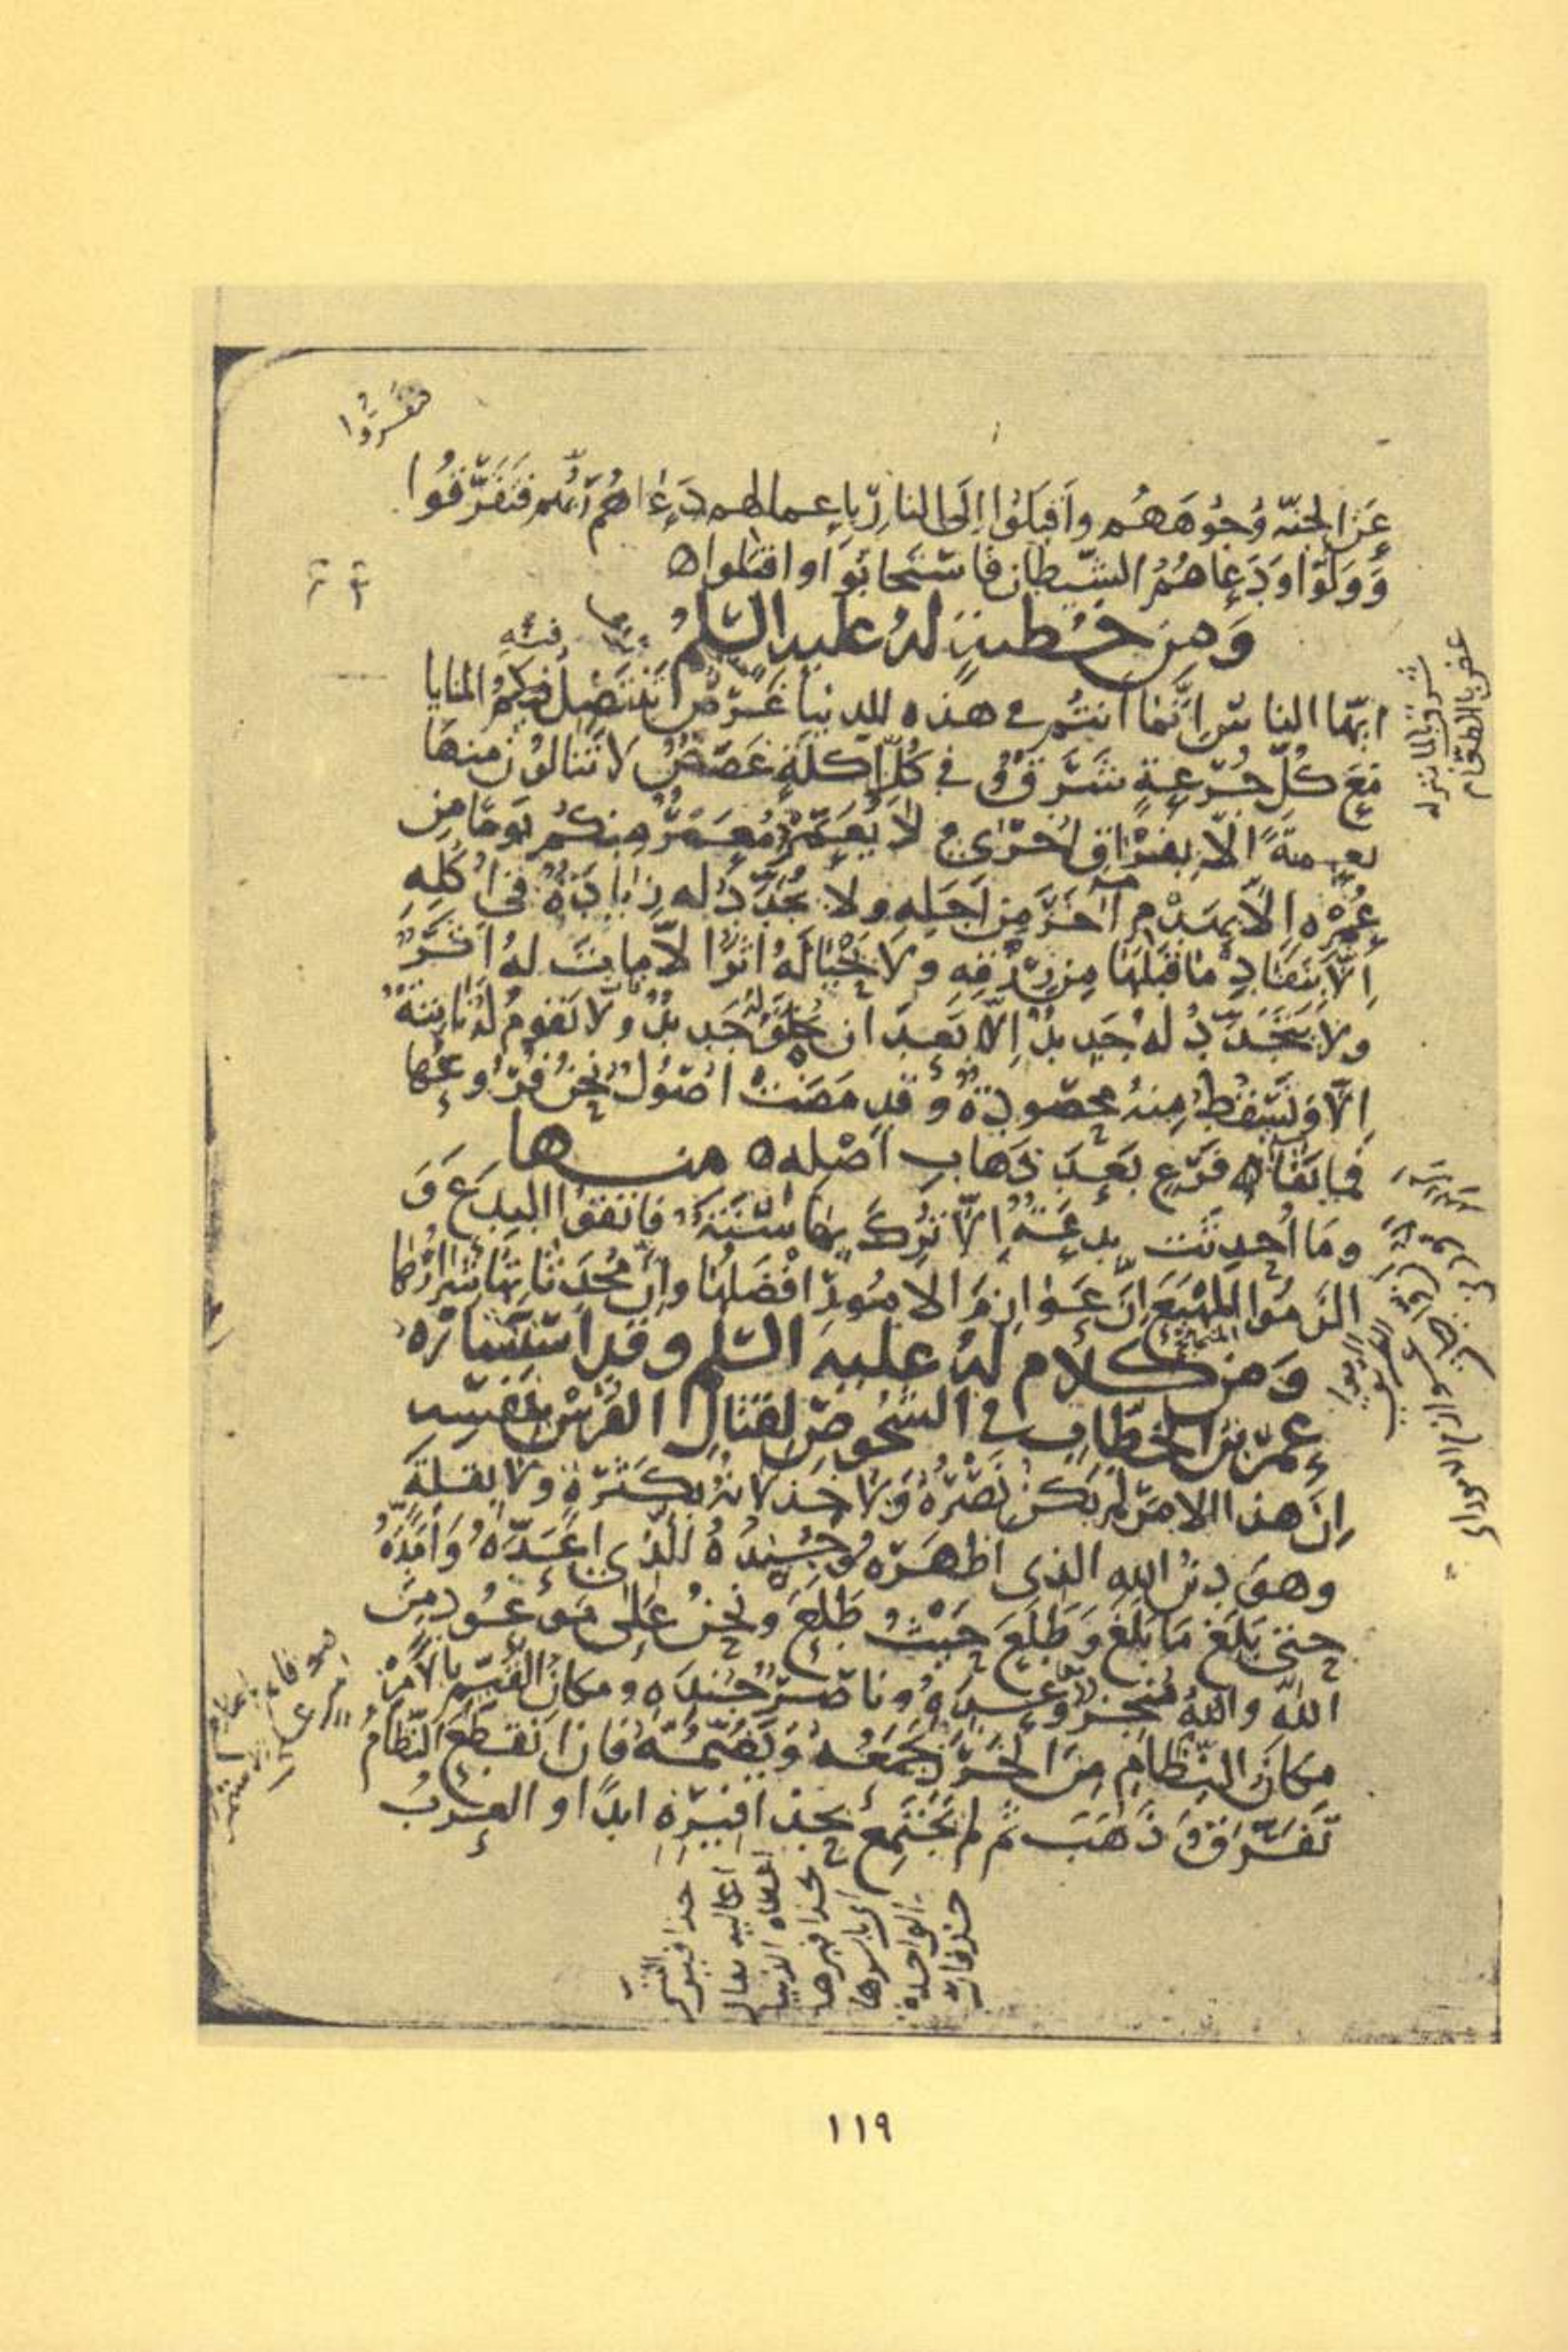 فنفروا
عَنِ الجنّة وُجُوهَهُم وأَقبَلُوا إلَى النارِ بِاعمالهم دَعَاهُم رَبُّهُم فَنَفَرُوا
وَوَلَّوا وَدَعَاهُمُ الشّيطان فاستجابُوا واقبلوا ه
وَمِن خُطبةٍ لهُ عليه السّلمُ
فيه
ايّها الناسُ اِنَّمَا اَنتُم في هذه الدنيا غَرَضٌ تَنتَضِلُ فيكمُ المنايا
مَعَ كُلِّ جُرعةٍ شَرَقٌ وفي كُلِّ اَكلةٍ غَصَصٌ لا تَنالوُن منهَا
نعيمةً الّا بِفِرَاقِ اُخرَى ولا يُعَمَّرُ مُعَمَّرٌ مِنكُم يَومًا مِن
عُمُرِه اِلّا بهَدمِ آخَرَ مِن اَجَلِهِ ولا تُجَدَّدُ له زِيادَةٌ في اُكُلِهِ
اِلّا بنَفَادِ مَا قَبلَها مِن رِزقِهِ ولا يَحيَا لَهُ اَثَرٌ الّا ماتَ لهُ اَثَرٌ
ولا يَتَجَدَّدُ لهُ جَدِيدٌ اِلّا بَعدَ ان يَخلَقَ لهُ جَدِيدٌ ولا تَقومُ لهُ نابتةٌ
اِلّا وتَسقُطُ مِنهُ محصُودةٌ وقد مَضَت اُصُولٌ نحنُ فُروعُها
فما بَقَاءُ فَرعٍ بَعدَ ذَهابِ اَصلِه ه منها
ومَا اُحدِثَت بِدعَةٌ اِلّا تُرِكَ بِها سُنّةٌ فاتّقوُا البِدَعَ وَ
الزَمُوا المَهيَعَ اِنَّ عَوازِمَ الامُورِ افضَلُها واِنَّ مُحدَثاتِها شِرارُها
وَمِن كلام لهُ عليه السّلم وقد استَشَارَه
عمر بن الخطّاب في الشُخوصِ لقتالِ الفُرسِ بنَفسِه
اِنّ هذا الامرَ لم يَكُن نَصرُهُ وَلا خِذلانُهُ بِكَثرَةٍ ولا بقلّةٍ
وهوَ دِينُ اللهِ الذي اظهَرَه وَجُندُهُ الّذي اَعَدَّهُ وَاَمَدَّهُ
حتى بَلَغَ مَا بَلَغَ وَطَلَعَ حَيثُ طَلَعَ ونحنُ عَلى مَوعُودٍ مِنَ
اللهِ واللهُ مُنجِزٌ وَعدَهُ وناصِرٌ جُندَه ومكانُ القَيّمِ بالامرِ
مكانُ النِّظامِ مِنَ الخَرَزِ يَجمَعُهُ وَيَضُمُّهُ فاذا انقَطَعَ النّظامُ
تَفَرَّقَ وَذَهَبَ ثُمَّ لم يَجتَمِع بحَذافِيرِه ابدًا والعربُ
شرق بالماء
غص بالطعام
حذافير الشيء
اعاليه يقال
اعطاه الدنيا
بحذافيرها
اي باسرها
الواحدة
حذفار
١١٩